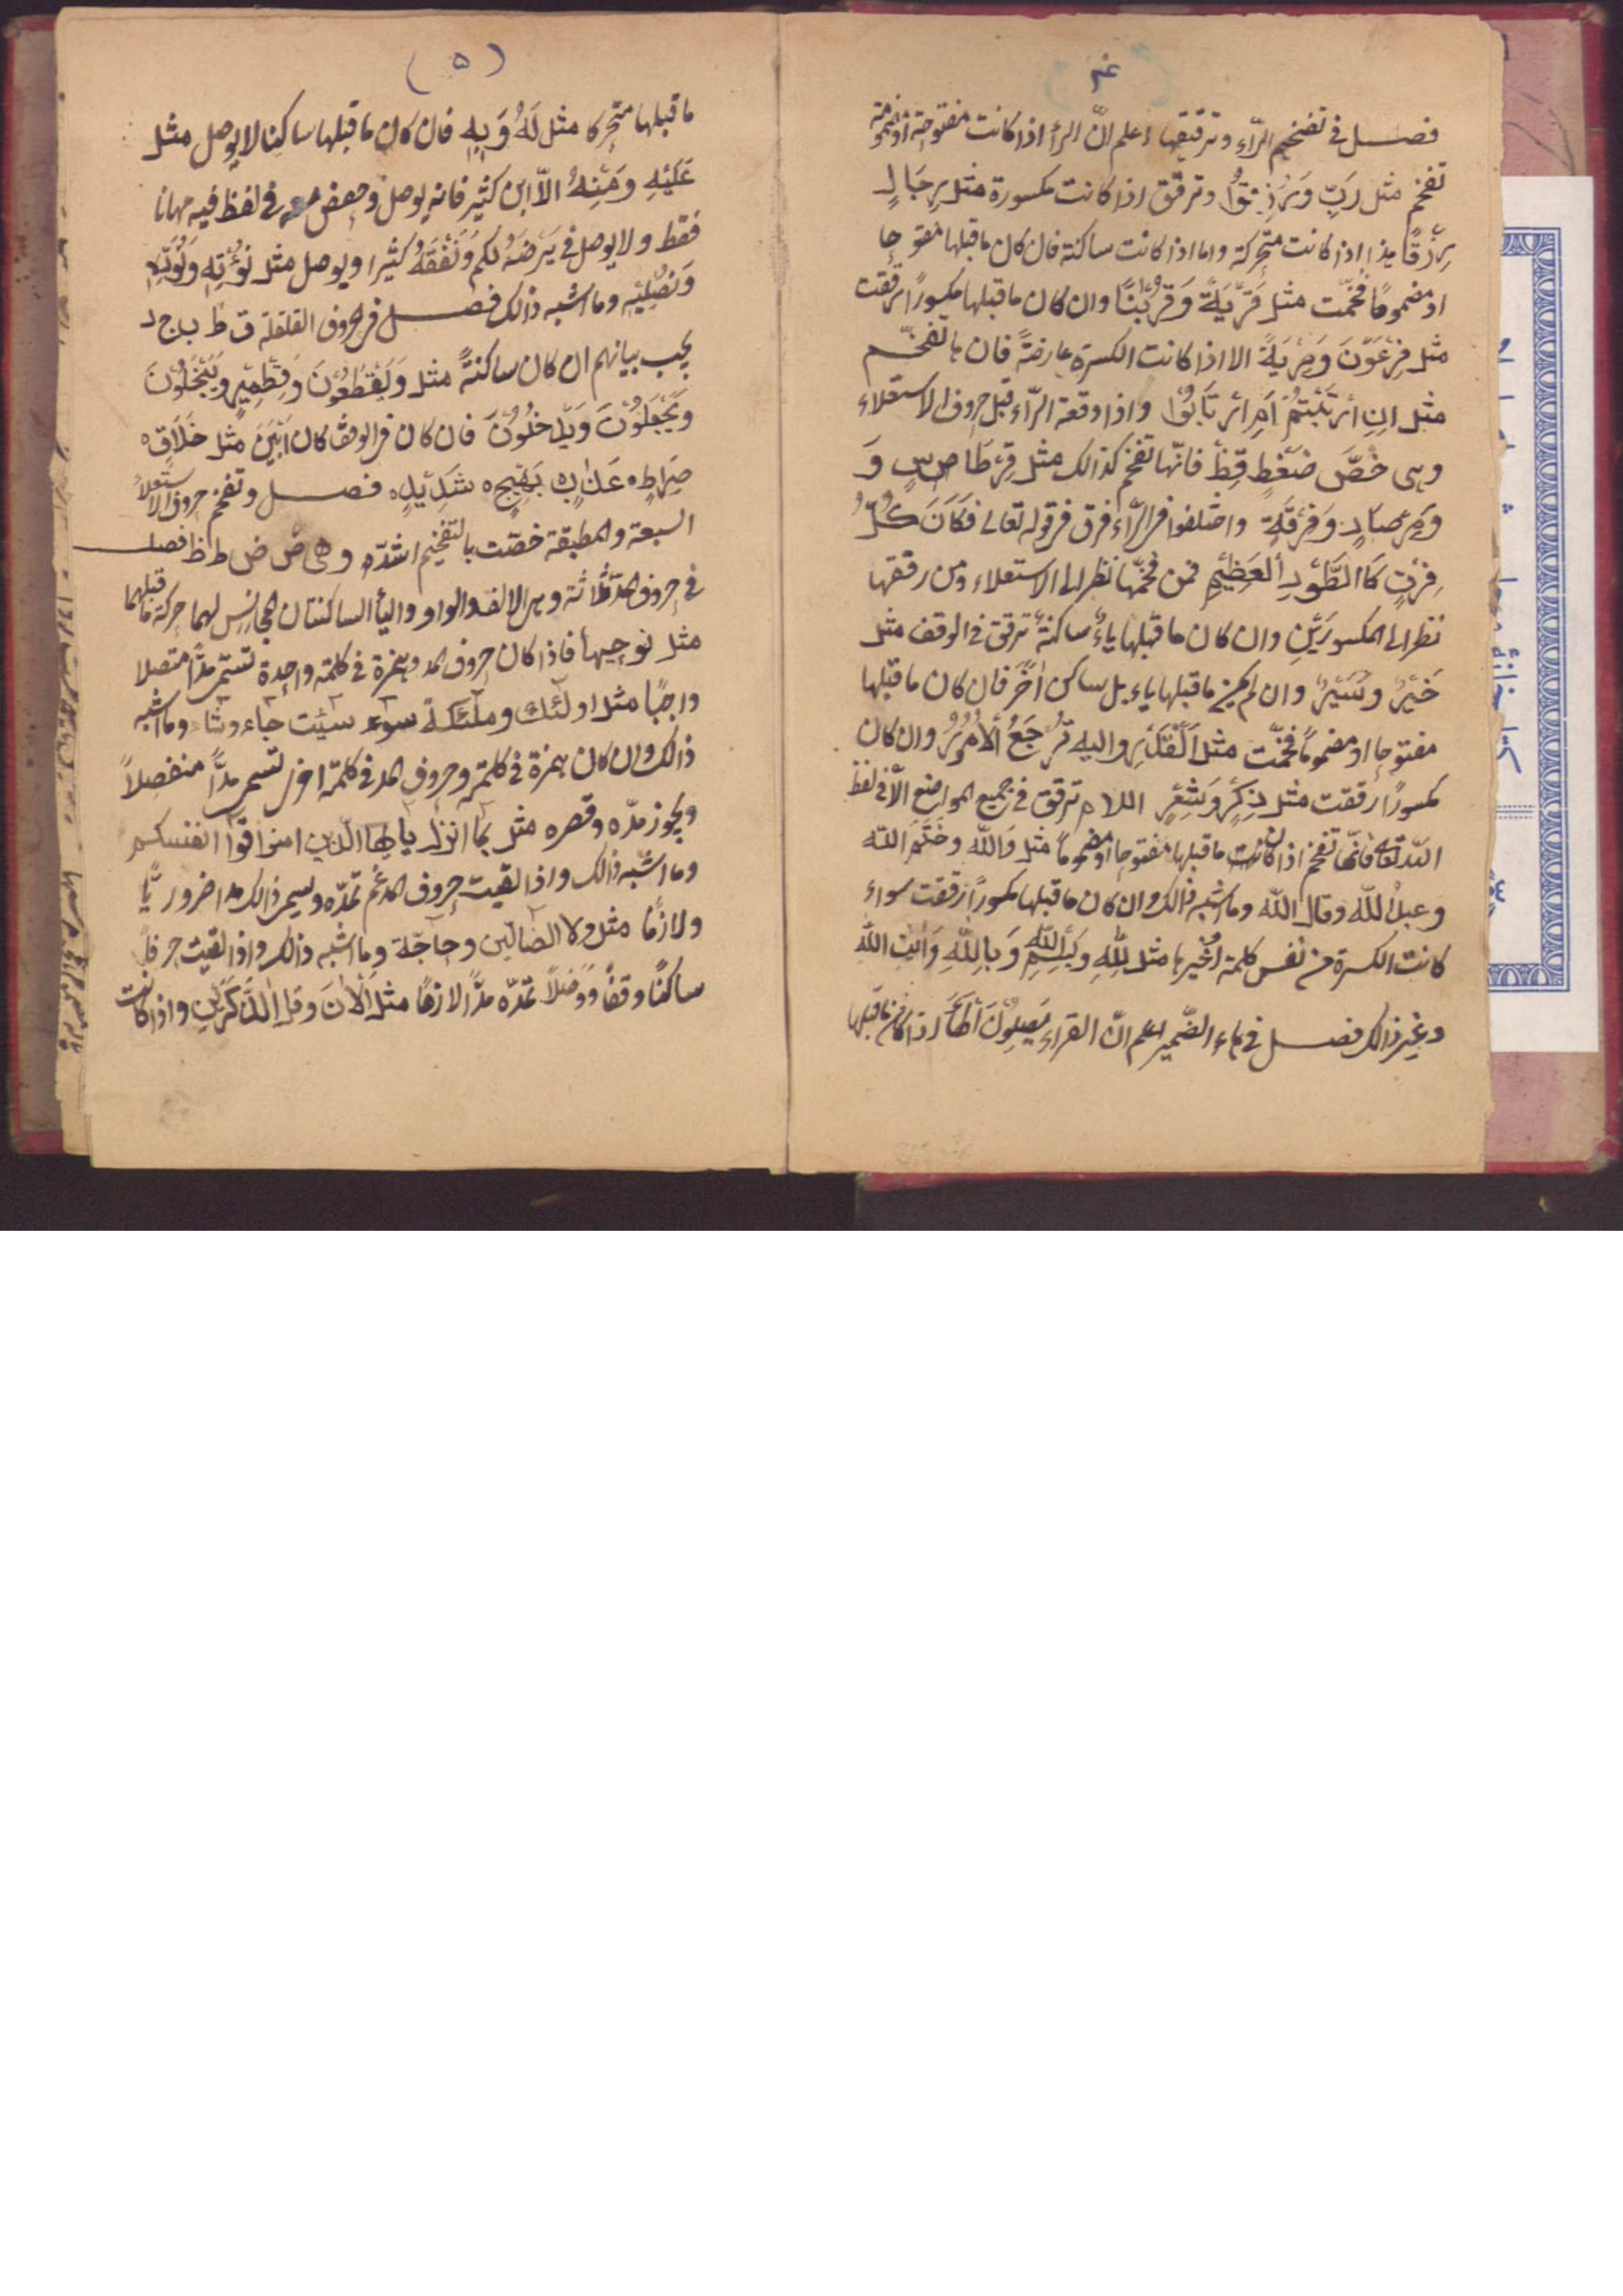 فصـل فى تفخيم الرّاء وترقيقها اعلم انّ الرّأ اذا كانت مفتوحة اومضمومة
تفخم مثل رَبِّ وَرُزِقُوْا وترقق اذا كانت مكسورة مثل رِجَالٍ
رِزْقًا هذا اذا كانت متحركة واما اذا كانت ساكنة فان كان ما قبلها مفتوحا
او مضمومًا فخّمت مثل قَرْيَةً وَقُرْبٰنًا وان كان ما قبلها مكسورًا رققت
مثل فِرْعَوْنَ وَمِرْيَةً الا اذا كانت الكسرة عارضةً فان بالتفخّيم
مثل اِنِ ارْتَبْتُمْ اَمِ ارْتَابُوْا واذا وقعة الرّاء قبل حروف الاستعلاء
وهى خُصَّ ضَغْطٍ قِظْ فانّها تفخم كذالك مثل قِرْطَاسٍ وَ
وَمِرْصَادٍ وَفِرْقَةٍ واختلفوا فى الرّاء فرق فى قوله تعالى فَكَانَ كُلُّ
فِرْقٍ كَالطَّوْدِ الْعَظِيْمِ فمن فخمّها نظر الى الاستعلاء ومن رققها
نظر الى المكسورَيْنِ وان كان ما قبلها ياءٌ ساكنةٌ ترقق فى الوقف مثل
خَيْرٌ وسَيْرٌ وان لم يكن ما قبلها ياء بل ساكن اٰخَر فان كان ما قبلها
مفتوحا او مضمومًا فخّمت مثل اَلْقَدْرِ واليه تُرْجَعُ الْاُمُوْرُ وان كان
مكسورًا رققت مثل ذِكْرٍ وَشِعْرٍ اللام ترقق فى جميع المواضع الّا فى لفظ
اللّٰه تعالى فانّها تفخم اذا كانت ما قبلها مفتوحا اومضمومًا مثل وَاللّٰه وخَتَمَ اللّٰه
وعبدُ اللّٰه وقال اللّٰه وما اشبه ذالك وان كان ما قبلها مكسورًا رققت سواء
كانت الكسرة من نفس كلمة اوغيرها مثل لِلّٰهِ وبِسْمِ اللّٰهِ وَبِاللّٰهِ وَاٰيٰتِ اللّٰه
وغير ذالك فصـل فى هاء الضّمير اعلم انّ القراء يَصِلُوْنَ الهَاءَ اذا كان ما قبلها
(٥)
ما قبلها متحركا مثل لَهُ وَبِهٖ فان كان ما قبلها ساكنا لا يوصل مثل
عَلَيْهِ وَمِنْهُ الاّ ابن كثير فانه يوصل وحفص معه فى لفظ فيه مهانا
فقط ولا يوصل فى يَرْضَهُ لكم وَنَفْقَهُ كثيرا ويوصل مثل نُؤْتِهٖ وَنُوَلِّهٖ
وَنُصْلِهٖ وما اشبه ذالك فصـل فى حروف القلقلة ق ط ب ج د
يجب بيانهم ان كان ساكنةً مثل وَيَقْطَعُوْنَ وَقِطْمِيْرٍ وَيَبْخَلُوْنَ
وَيَجْعَلُوْنَ وَيَدْخُلُوْنَ فان كان فى الوقف كان اَبْيَنَ مثل خَلَاقٍ ه
صِرَاطٍ ه عَذَابٍ ه بَهِيْجٍ ه شَدِيْدٍ ه فصـل وتفخم حروف الاستعلاء
السبعة والمطبقة خصّت بالتفخيم اشدّه وهى ص ض ط ظ فصـل
فى حروف المدّ ثلاثة وهى الالف والواو واليأ الساكنتان المجانِسُ لهما حركة ما قبلهما
مثل نوحيها فاذا كان حروف المد وهمزة فى كلمة واحدة تسمّى مدًّا متصلا
واجبًا مثل اولٰئك وملٰئكة سوء سيئت جاء وشاء وما اشبه
ذالك وان كان همزة فى كلمة وحروف المد فى كلمة اخرى تسمى مدًّا منفصلاً
ويجوز مدّه وقصره مثل بما انزل يا ايها الّذين امنوا قوا انفسكم
وما اشبه ذالك واذا لقيت حروف المدغم تمدّه ويسمى ذالك مدا ضروريًّا
ولازمًا مثل ولا الضالّين وحاجّة وما اشبه ذالك واذا لقيت حرفاً
ساكنًا وقفًا ووصلاً تمدّه مدًّا لازمًا مثل اٰلْاٰنَ وقل اٰلذَّكَرَيْنِ واذا كانت